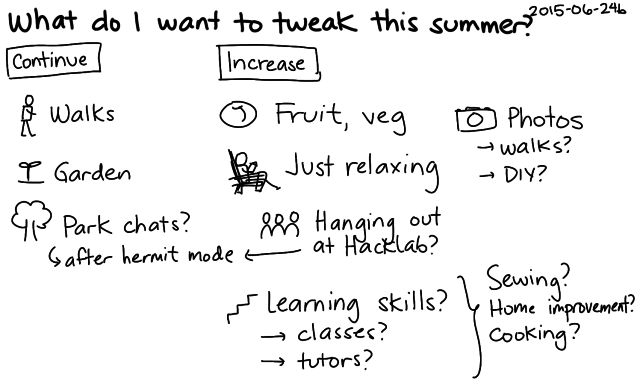 What do I want to tweak this summer?
2015-06-24b
Continue
Walks
Garden
Park chats?
↳ after hermit mode ←
Increase
Fruit, veg
Just relaxing
Hanging out
at Hacklab?
Learning skills?
→ classes?
→ tutors?
Photos
→ walks?
→ DIY?
Sewing?
Home improvement?
Cooking?